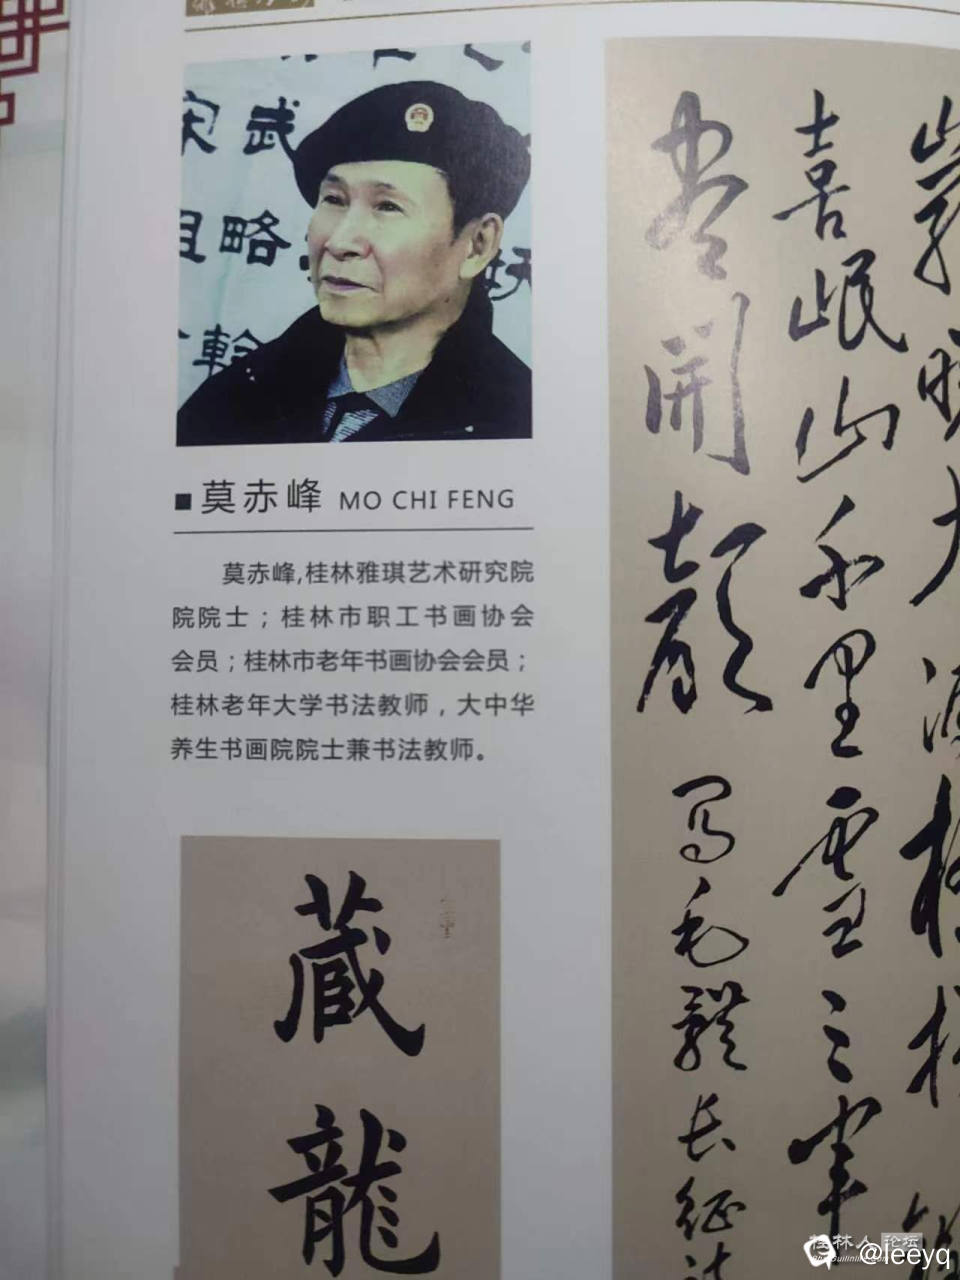 武
略
翰
莫赤峰 MO CHI FENG
莫赤峰,桂林雅琪艺术研究院
院院士；桂林市职工书画协会
会员；桂林市老年书画协会会员；
桂林老年大学书法教师，大中华
养生书画院院士兼书法教师。
藏
龍
喜岷山千里雪三军
尽開颜
写毛體长征诗
桂林人论坛
@leeyq